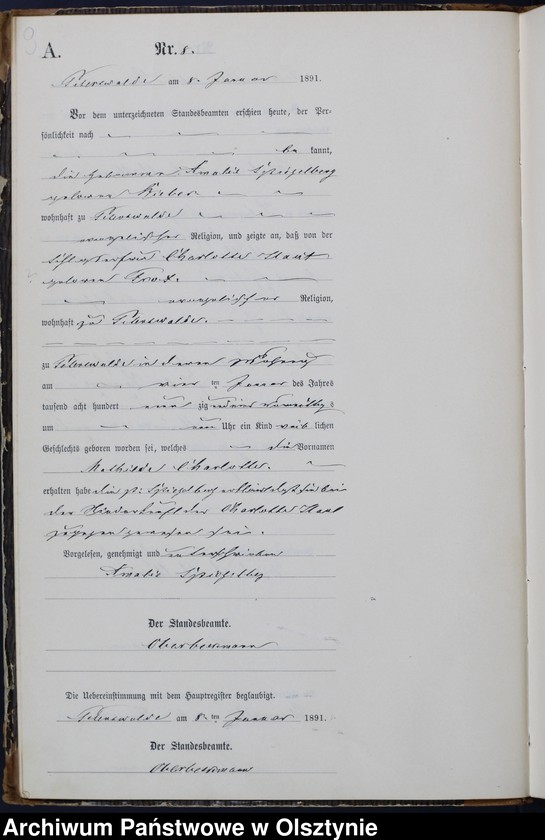 A.
Nr. 8.
am 8. Januar 1891.
Vor dem unterzeichneten Standesbeamten erschien heute, der Per-
sönlichkeit nach
be kannt,
die Hebamme Amalie Spiegelberg
geborene Kieber
wohnhaft zu
evangelischer Religion, und zeigte an, daß von der
Charlotte
geborene
evangelischer Religion,
wohnhaft zu
zu in deren Wohnung
am vier ten Januar des Jahres
tausend acht hundert neun zig und eins Vormittags
um neun Uhr ein Kind weib lichen
Geschlechts geboren worden sei, welches die Vornamen
Mathilde Charlotte.
erhalten habe die p. Spiegelberg erklärt daß sie bei
der Niederkunft der Charlotte
zugegen gewesen sei.
Vorgelesen, genehmigt und unterschrieben
Amalie Spiegelberg
Der Standesbeamte.
Oberbeckmann
Die Uebereinstimmung mit dem Hauptregister beglaubigt.
am 8. ten Januar 1891.
Der Standesbeamte.
Oberbeckmann
Archiwum Państwowe w Olsztynie